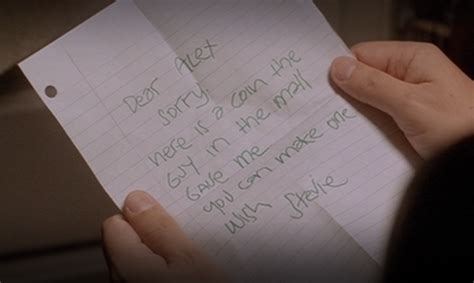 Dear Alex
Sorry.
here is a coin the
Guy in the mall
Gave me
you can make one
wish Stevie